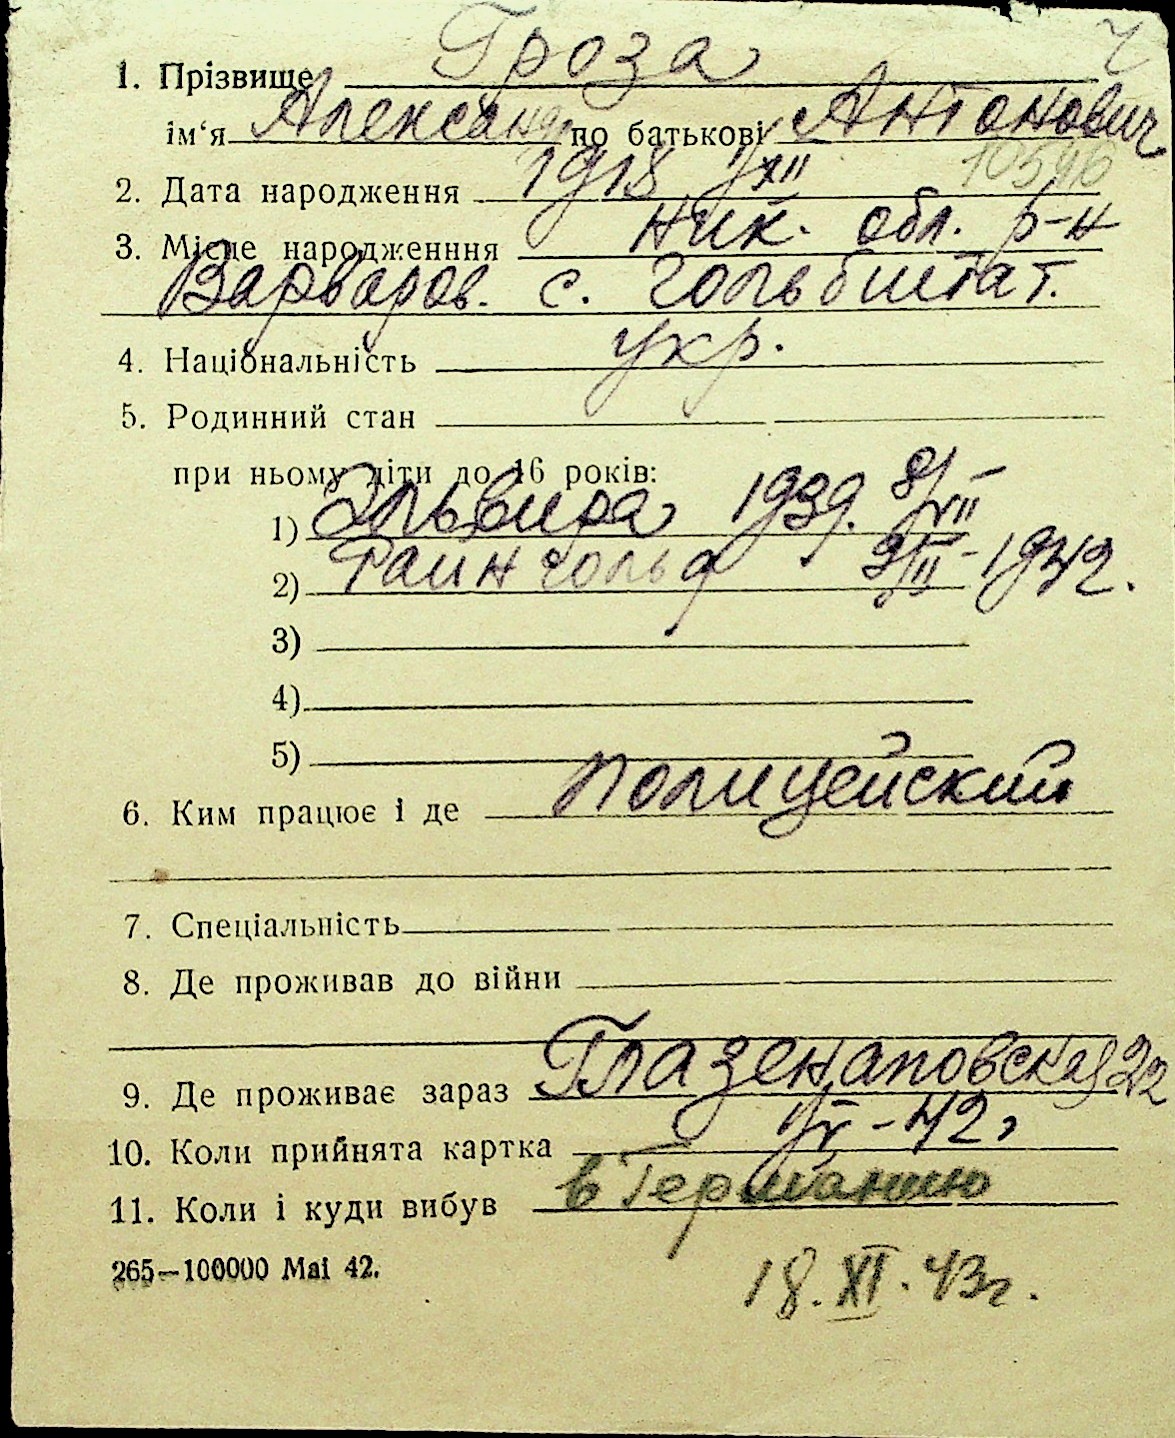 1. Прізвище Гроза
ім'я Александр по батькові Антонович
10596
2. Дата народження 1918 1/XII
3. Місце народженння Ник. обл. р-н
Варваров. с. Гольбштат.
4. Національність укр.
5. Родинний стан
при ньому діти до 16 років:
1) Эльвира 1939. 8/VII
2) Раингольд 9/II - 1942.
3)
4)
5)
6. Ким працює і де полицейский
7. Спеціальність
8. Де проживав до війни
9. Де проживає зараз Глазенаповская 22
10. Коли прийнята картка 1/V - 42 г
11. Коли і куди вибув в Германию
265—100000 Mai 42. 18. XI. 43г.